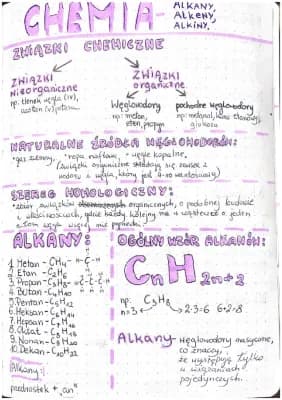 CHEMIA-
ALKANY,
ALKENY,
ALKINY.
ZWIĄZKI CHEMICZNE
ZWIĄZKI
nieorganiczne
np: tlenek węgla (IV),
ZWIĄZKI
organiczne
Węglowodory
np: metan,
eten, propyn
pochodne węglowodorów
glukoza
NATURALNE ŹRÓDŁA WĘGLOWODORÓW:
*gaz ziemny, *ropa naftowa, *węgle kopalne,
(związki organiczne składają się zawsze z
wodoru i węgla, który jest 4-ro wartościowy)
SZEREG HOMOLOGICZNY:
zbiór związków organicznych, o podobnej budowie
i właściwościach, gdzie każdy kolejny ma w cząsteczce o jeden
atom węgla więcej niż poprzedni.
ALKANY:
1. Metan - CH4
2. Etan - C2H6
3. Propan - C3H8
4. Butan - C4H10
5. Pentan - C5H12
6. Heksan - C6H14
7. Heptan - C7H16
8. Oktan - C8H18
9. Nonan - C9H20
10. Dekan - C10H22
Alkany:
przedrostek + „an"
OGÓLNY WZÓR ALKANÓW:
CnH2n+2
np: C3H8
n=3 2·3=6 6+2=8
Alkany - węglowodory nasycone,
co znaczy,
że występują tylko
w wiązaniach
pojedynczych.